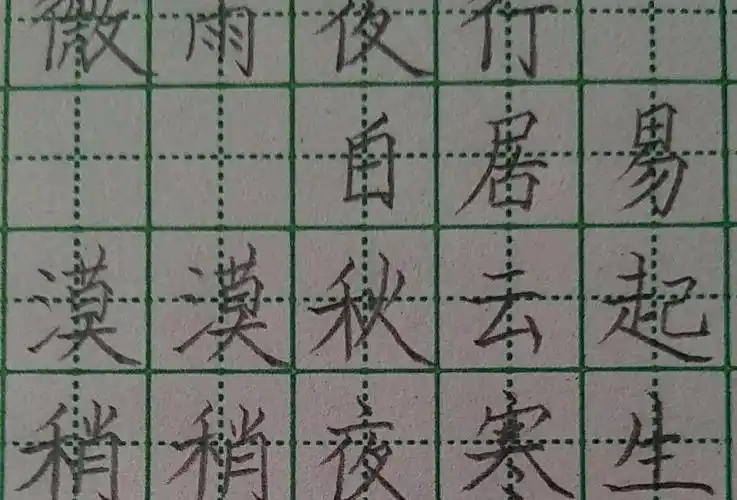 微雨夜行
白居易
漠漠秋云起
稍稍夜寒生